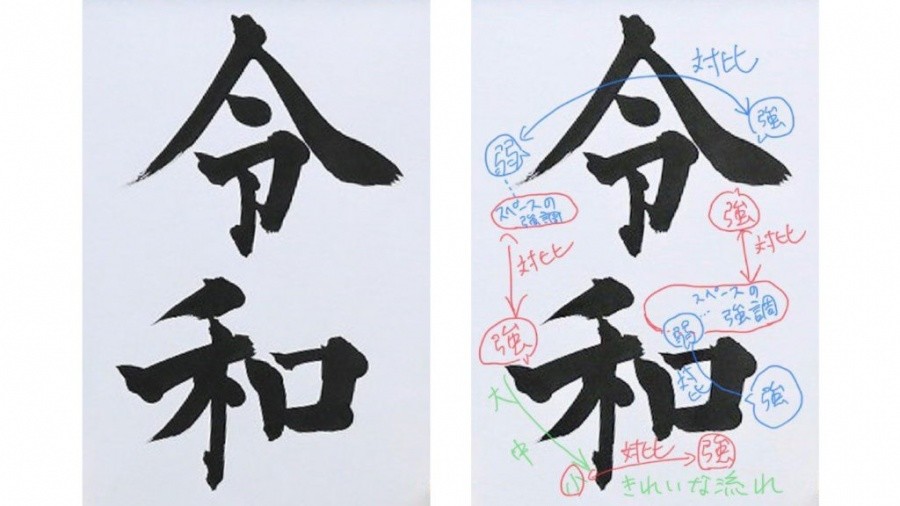 令
和
令
和
対比
強
弱
スペースの
強調
強
対比
対比
スペースの
強調
強
弱
対比
強
大
中
小
対比
強
きれいな流れ